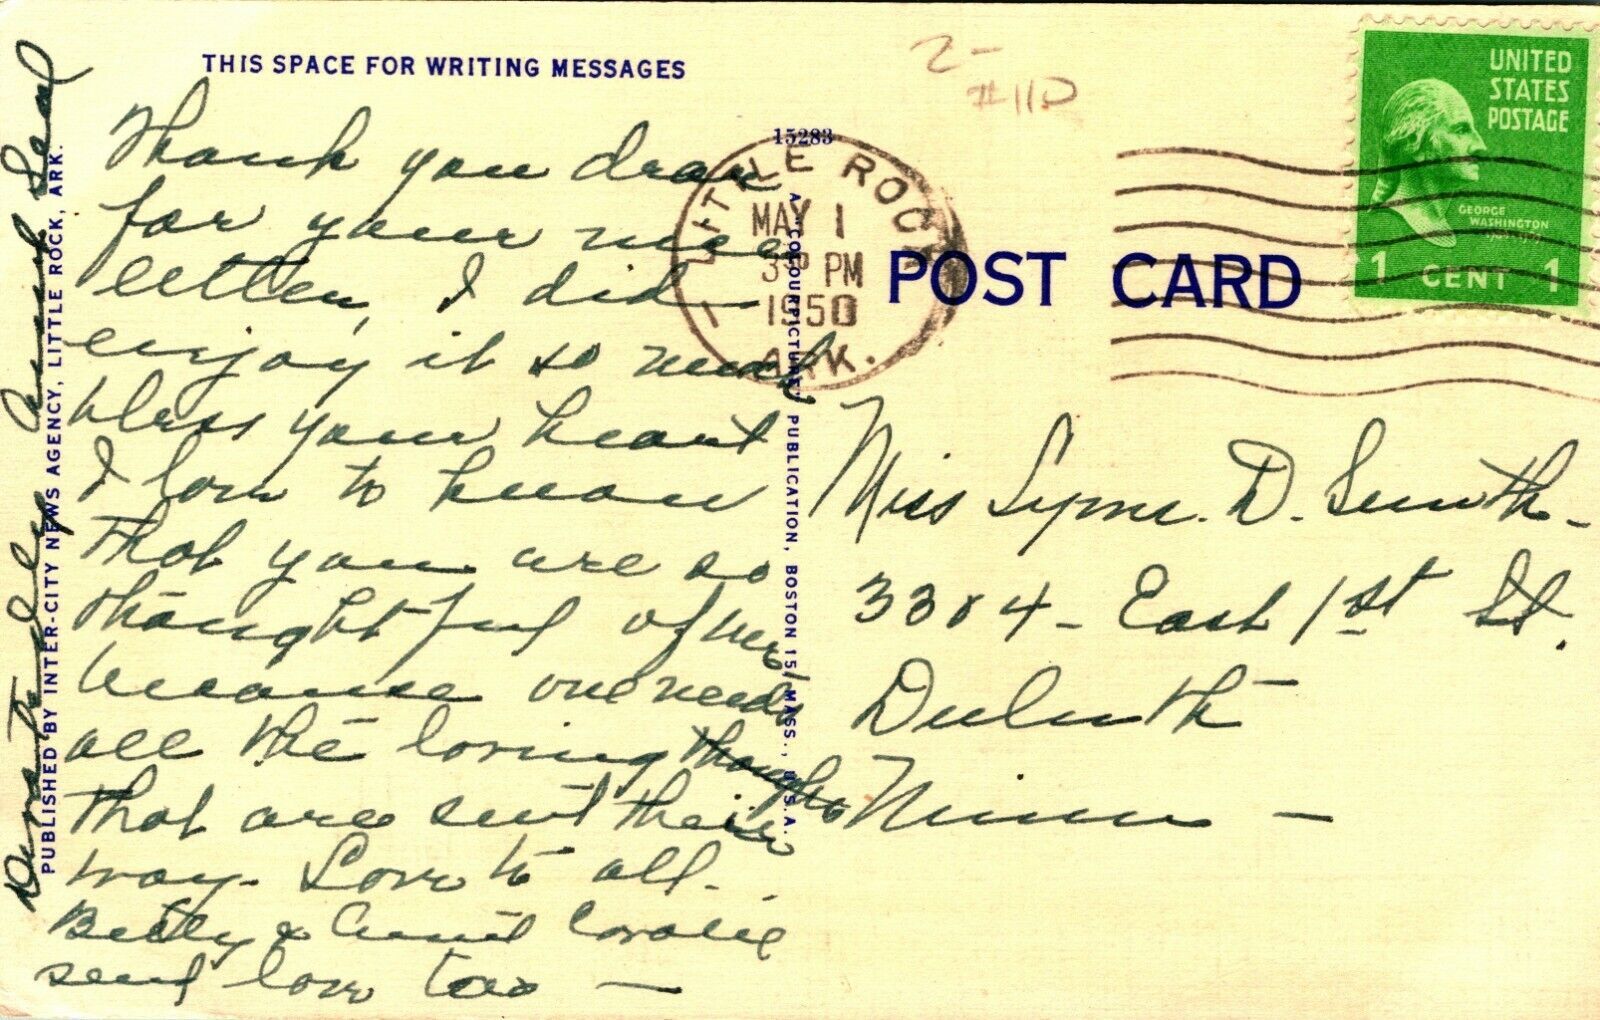 THIS SPACE FOR WRITING MESSAGES
Thank you dear
for your nice
letter, I did
enjoy it so much
bless your heart
I love to know
that you are so
thoughtful of me
because one needs
all the loving thoughts
that are sent their
way. Love to all.
Betty & Aunt Coralie
send love too —
Devotedly Aunt
PUBLISHED BY INTER-CITY NEWS AGENCY, LITTLE ROCK, ARK.
2-
#110
15283
A "COLOURPICTURE" PUBLICATION, BOSTON 15, MASS., U.S.A.
LITTLE ROCK
MAY 1
3 PM
1950
ARK.
POST CARD
UNITED
STATES
POSTAGE
GEORGE
WASHINGTON
1 CENT 1
Miss D. Smith -
3304 - East 1st St.
Duluth
Minn —